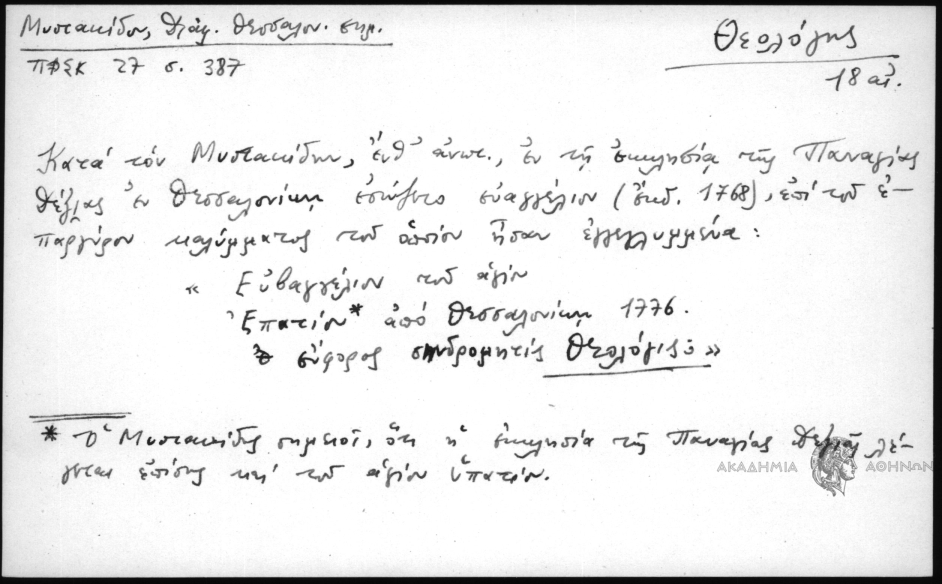 Μυστακίδου, Διάφ. Θεσσαλον. σημ.
ΠΦΣΚ 27 σ. 387
Θεολόγης
18 αἰ.
Κατά τόν Μυστακίδην, ἔνθ' ἀνωτ., ἐν τῇ ἐκκλησίᾳ τῆς Παναγίας
Δέξιας ἐν Θεσσαλονίκῃ ἐσώζετο εὐαγγέλιον (ἔκδ. 1768), ἐπί τοῦ ἐ-
παργύρου καλύμματος τοῦ ὁποίου ἦσαν ἐγγεγλυμμένα:
« Εὐβαγγέλιον τοῦ ἁγίου
Ἐπατίου* ἀπό Θεσσαλονίκη 1776.
εὔφορος συνδρομητίς Θεολόγις: »
* Ὁ Μυστακίδης σημειοῖ, ὅτι ἡ ἐκκλησία τῆς Παναγίας Δεξιᾶς λέ-
γεται ἐπίσης καί τοῦ ἁγίου Ὑπατίου.
ΑΚΑΔΗΜΙΑ ΑΘΗΝΩΝ